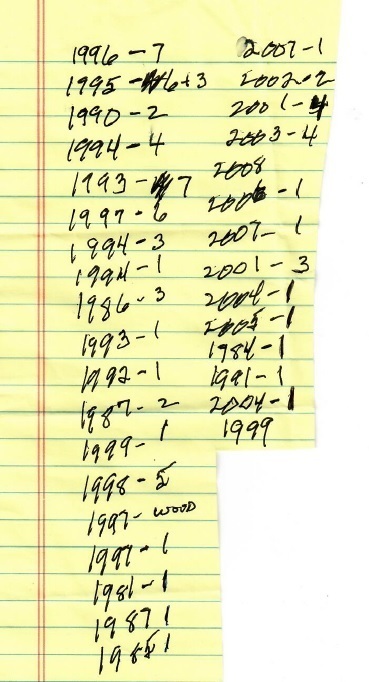 1996 - 7
1995 - 6+3
1990 - 2
1994 - 4
1993 - 7
1997 - 6
1994 - 3
1994 - 1
1986 - 3
1993 - 1
1992 - 1
1987 - 2
1999 - 1
1998 - 5
1997 - WOOD
1997 - 1
1981 - 1
1987 1
1985 1
2007 - 1
2002 - 2
2001 - 4
2003 - 4
2008
2006 - 1
2007 - 1
2001 - 3
2004 - 1
2005 - 1
1984 - 1
1991 - 1
2004 - 1
1999